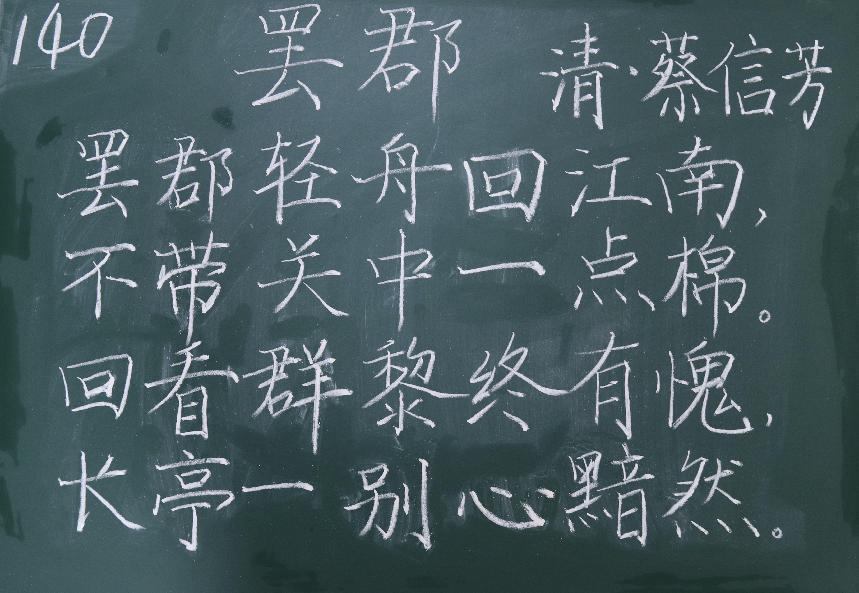 140
罢郡
清·蔡信芳
罢郡轻舟回江南,
不带关中一点棉。
回看群黎终有愧,
长亭一别心黯然。